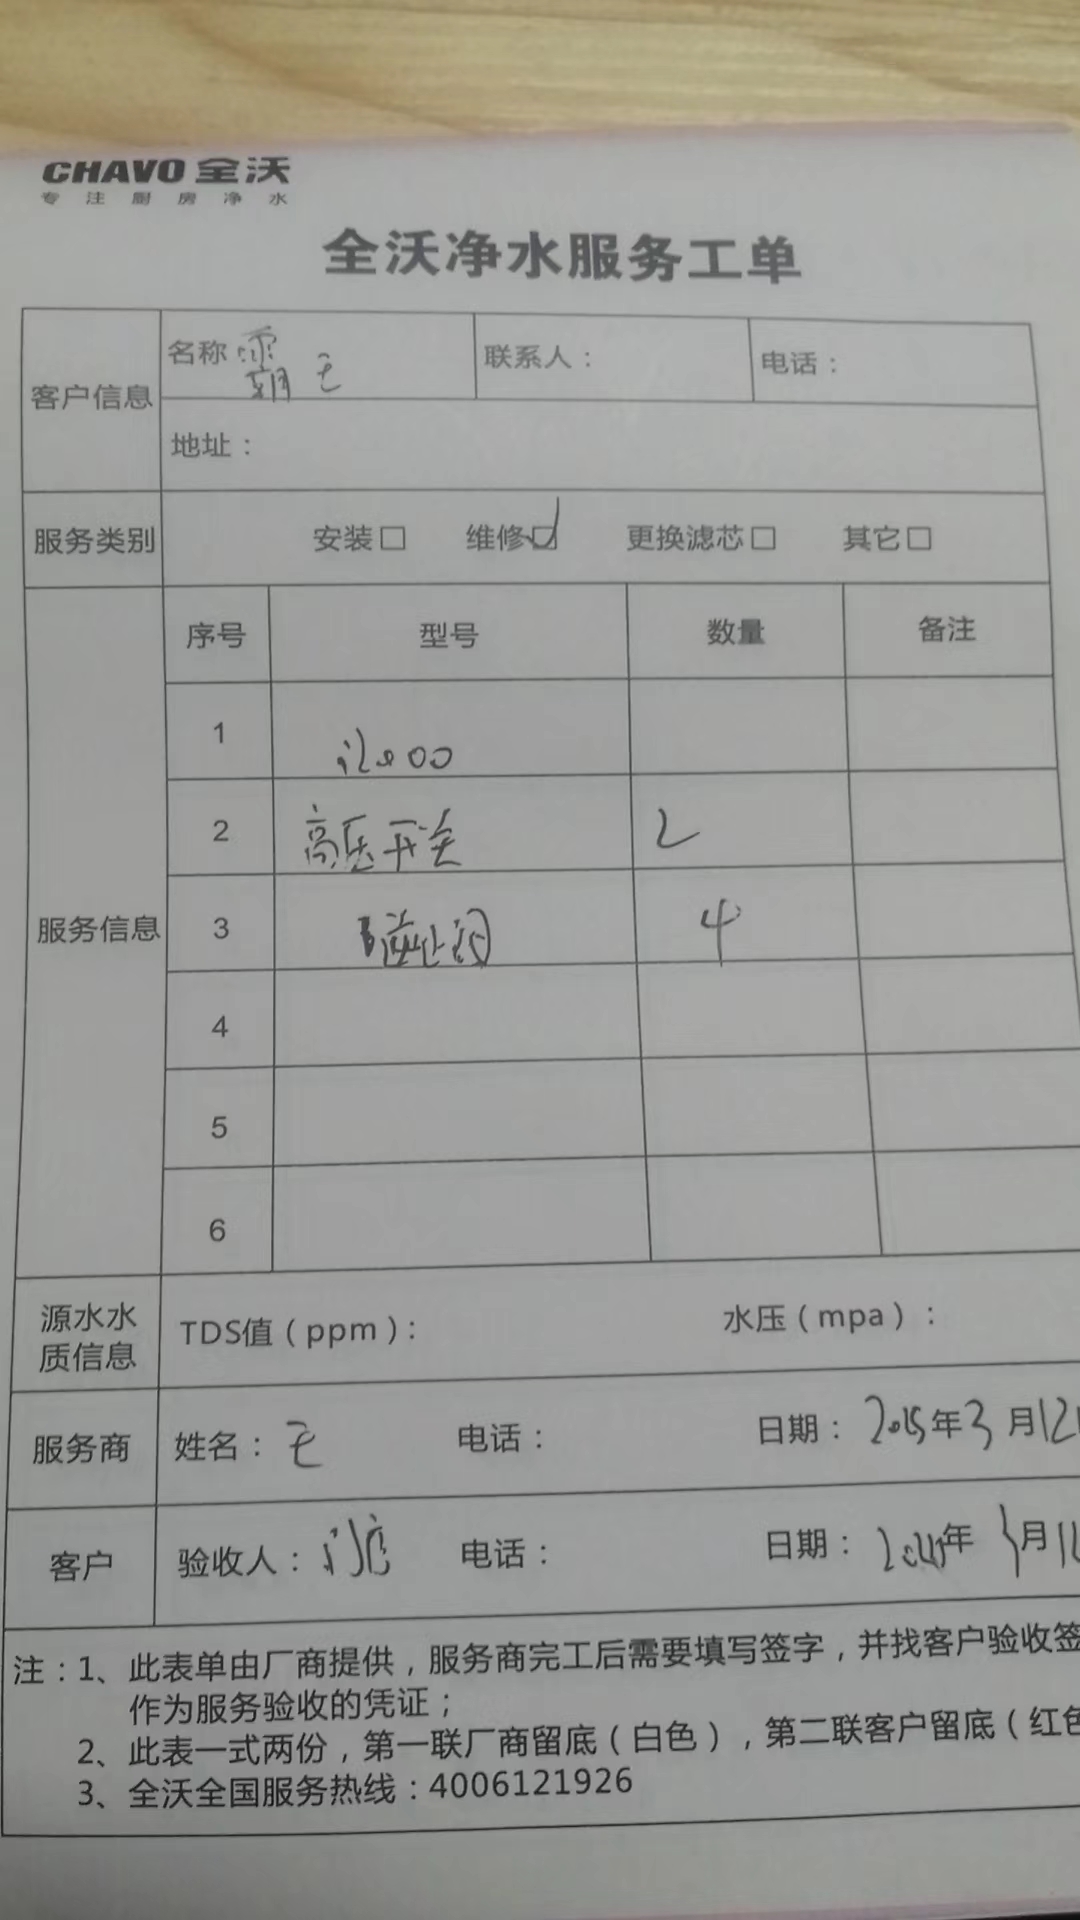 CHAVO 全沃
专注厨房净水
全沃净水服务工单
客户信息
名称 霸王
联系人：
电话：
地址：
服务类别
安装□ 维修☑ 更换滤芯□ 其它□
服务信息
序号 型号 数量 备注
1
2 高压开关 2
3 逆止阀 4
4
5
6
源水水质信息
TDS值（ppm）： 水压（mpa）：
服务商 姓名：王 电话： 日期：2015年3月12
客户 验收人： 电话： 日期： 年 月
注：1、此表单由厂商提供，服务商完工后需要填写签字，并找客户验收签
作为服务验收的凭证；
2、此表一式两份，第一联厂商留底（白色），第二联客户留底（红色
3、全沃全国服务热线：4006121926